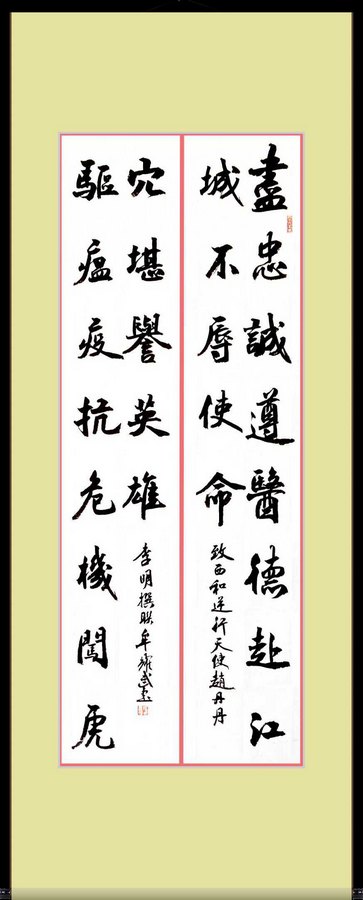 盡忠誠遵醫德赴江
城不辱使命
致西和逆行天使趙丹丹
驅瘟疫抗危機闖虎
穴堪譽英雄
李明撰联牟武書